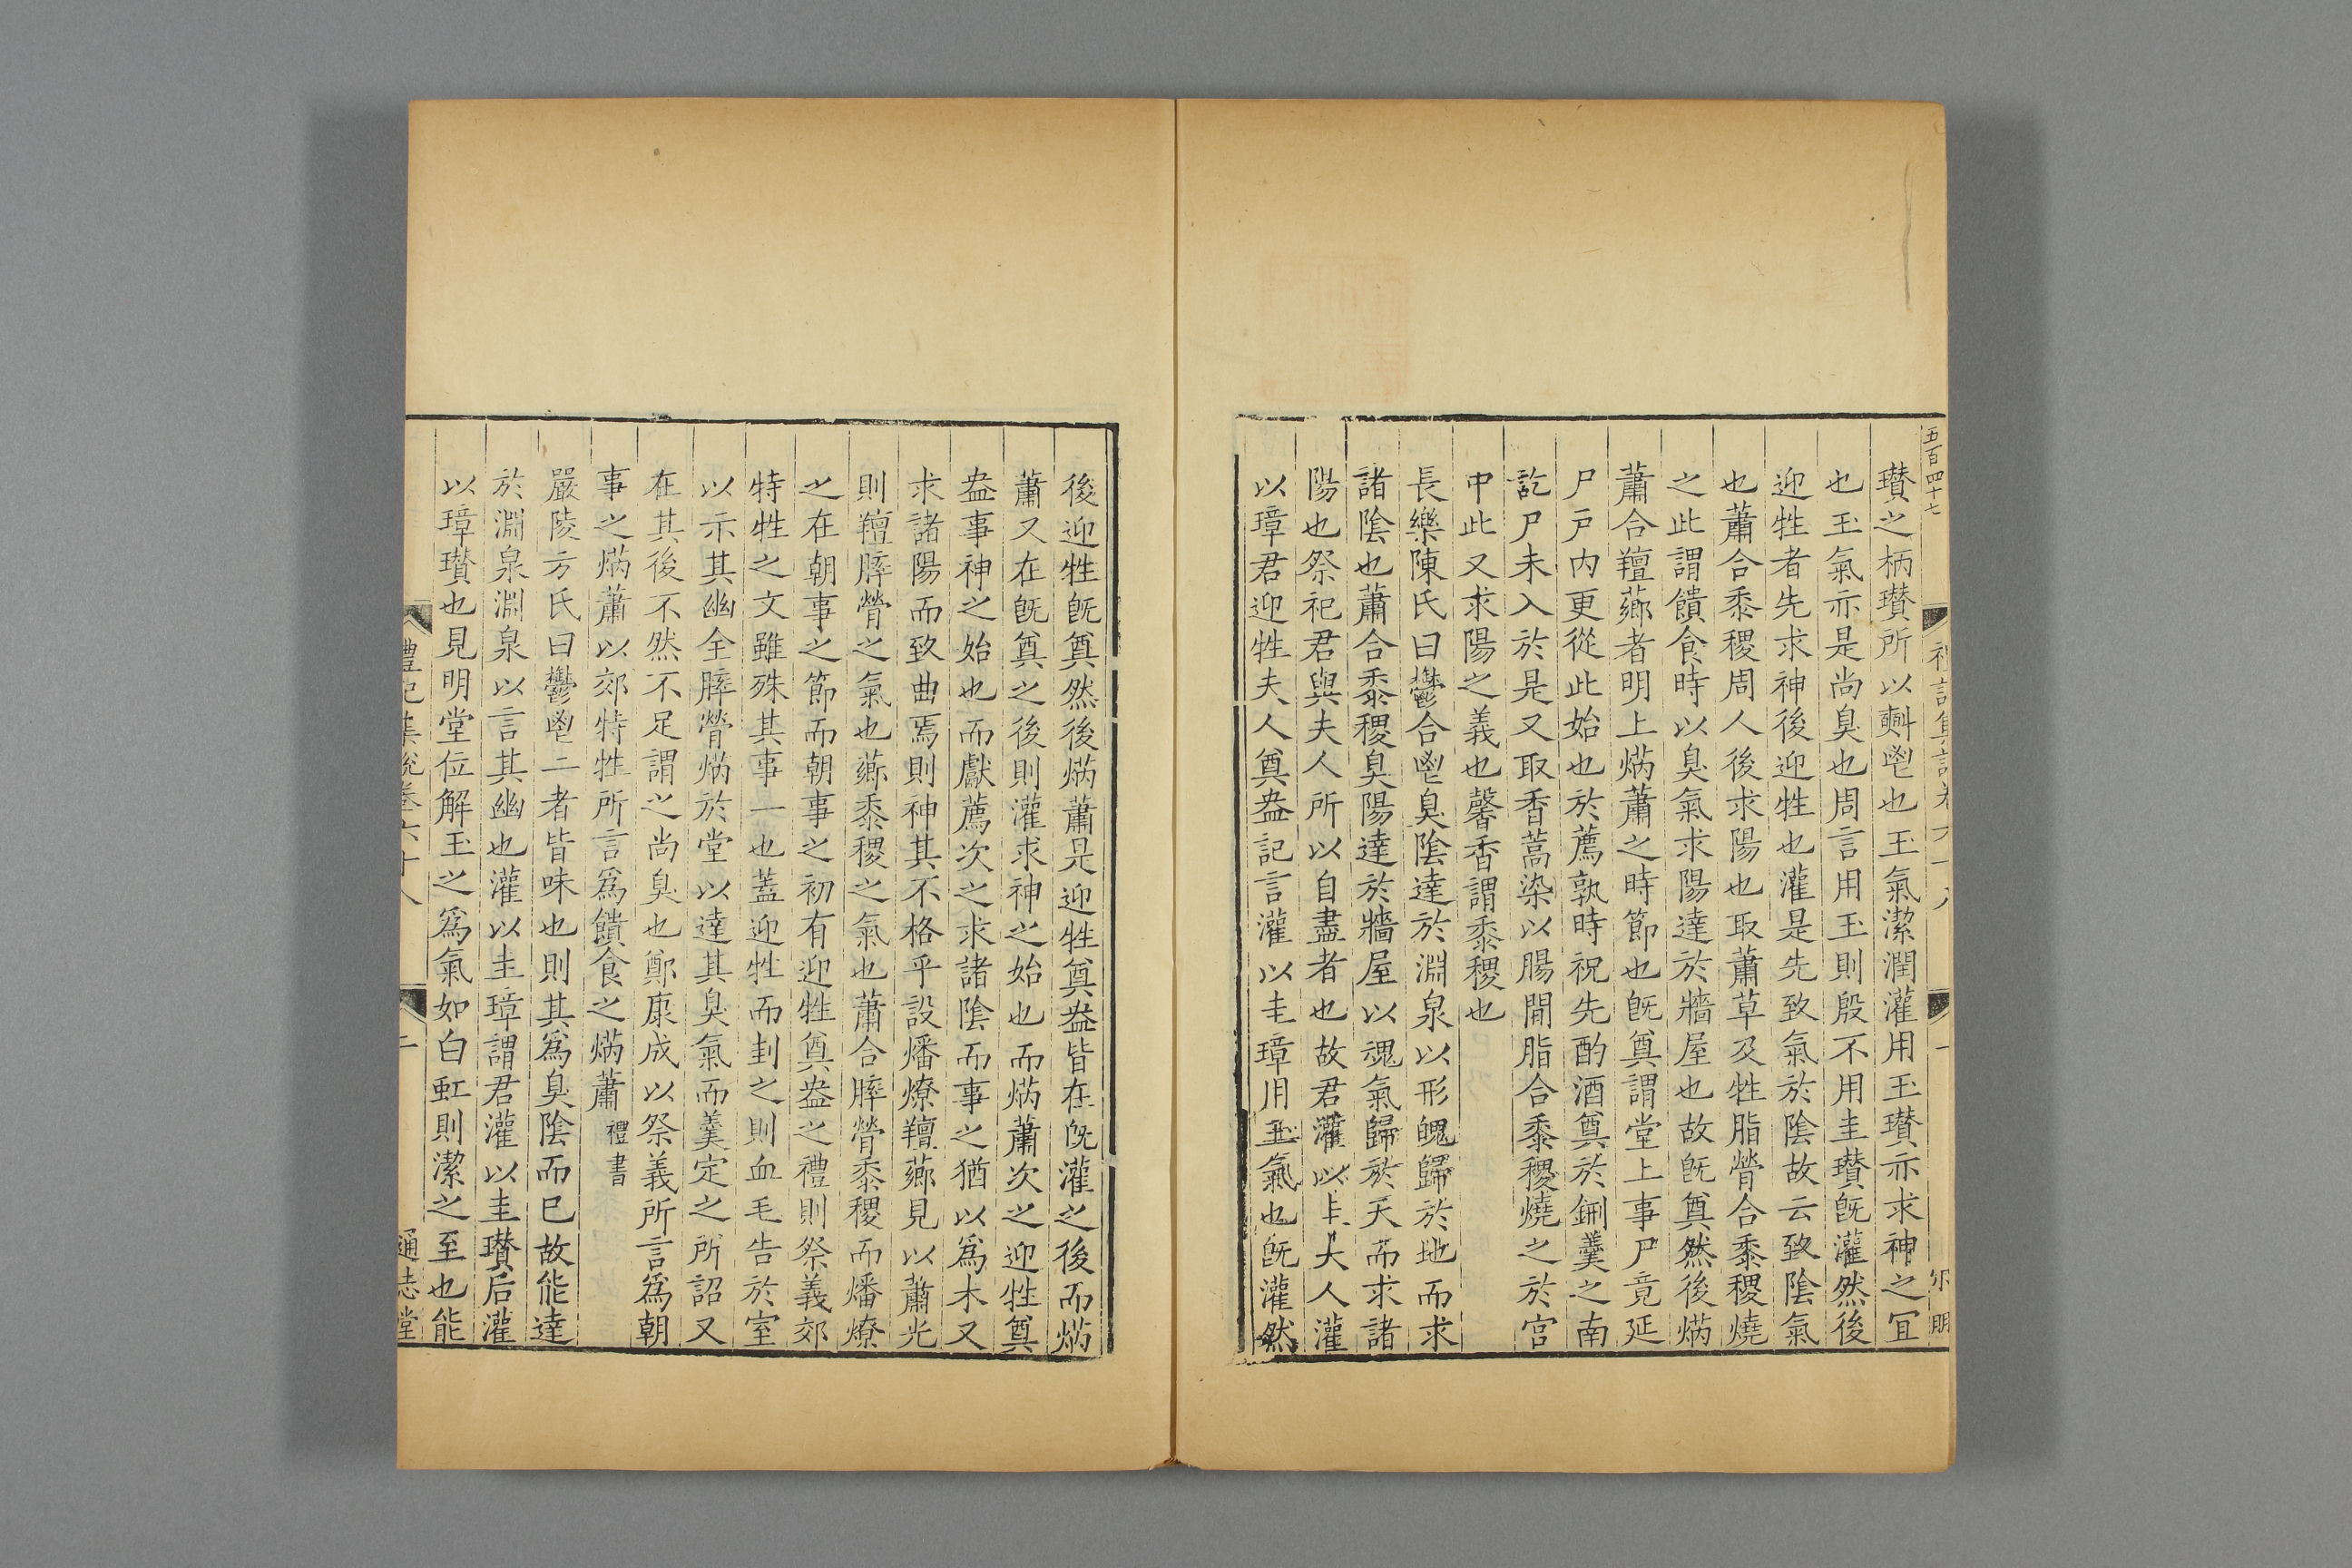 五百四十七
瓚之柄瓚所以㪺鬯也玉氣潔潤灌用玉瓚亦求神之宜
也玉氣亦是尚臭也周言用玉則殷不用圭瓚旣灌然後
迎牲者先求神後迎牲也灌是先致氣於陰故云致陰氣
也蕭合黍稷周人後求陽也取蕭草及牲脂膋合黍稷燒
之此謂饋食時以臭氣求陽達於牆屋也故旣奠然後焫
蕭合羶薌者明上焫蕭之時節也旣奠謂堂上事尸竟延
尸戸内更從此始也於薦孰時祝先酌酒奠於鉶羹之南
訖尸未入於是又取香蒿染以腸間脂合黍稷燒之於宮
中此又求陽之義也馨香謂黍稷也
長樂陳氏曰鬱合鬯臭陰達於淵泉以形魄歸於地而求
諸陰也蕭合黍稷臭陽達於牆屋以魂氣歸於天而求諸
陽也祭祀君與夫人所以自盡者也故君灌以圭夫人灌
以璋君迎牲夫人奠盎記言灌以圭璋用玉氣也旣灌然
後迎牲旣奠然後焫蕭是迎牲奠盎皆在旣灌之後而焫
蕭又在旣奠之後則灌求神之始也而焫蕭次之迎牲奠
盎事神之始也而獻薦次之求諸陰而事之猶以爲未又
求諸陽而致曲焉則神其不格乎設燔燎羶薌見以蕭光
則羶膟膋之氣也薌黍稷之氣也蕭合膟膋黍稷而燔燎
之在朝事之節而朝事之初有迎牲奠盎之禮則祭義郊
特牲之文雖殊其事一也蓋迎牲而刲之則血毛告於室
以示其幽全膟膋焫於堂以達其臭氣而羹定之所詔又
在其後不然不足謂之尚臭也鄭康成以祭義所言爲朝
事之焫蕭以郊特牲所言爲饋食之焫蕭 禮書
嚴陵方氏曰鬱鬯二者皆味也則其爲臭陰而已故能達
於淵泉淵泉以言其幽也灌以圭璋謂君灌以圭瓚后灌
以璋瓚也見明堂位解玉之爲氣如白虹則潔之至也能
禮記集說卷六十八 二 通志堂